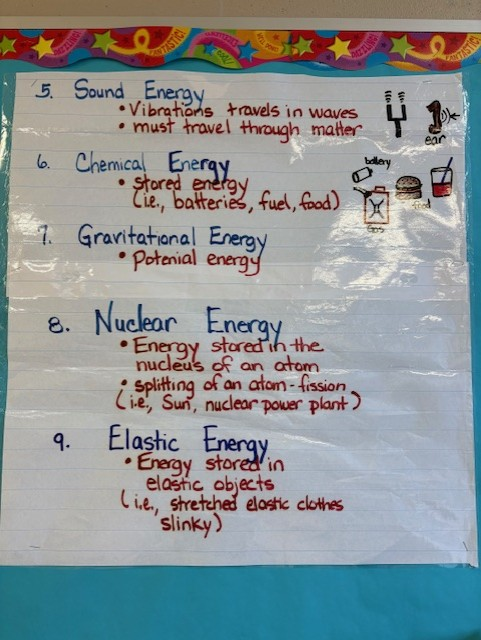 5. Sound Energy
• Vibrations travels in waves
• must travel through matter
ear
6. Chemical Energy
• stored energy
(i.e., batteries, fuel, food)
battery
food
Gas
7. Gravitational Energy
• Potenial energy
8. Nuclear Energy
• Energy stored in the
nucleus of an atom
• splitting of an atom - fission
(i.e., Sun, nuclear power plant)
9. Elastic Energy
• Energy stored in
elastic objects
(i.e., stretched elastic clothes
slinky)